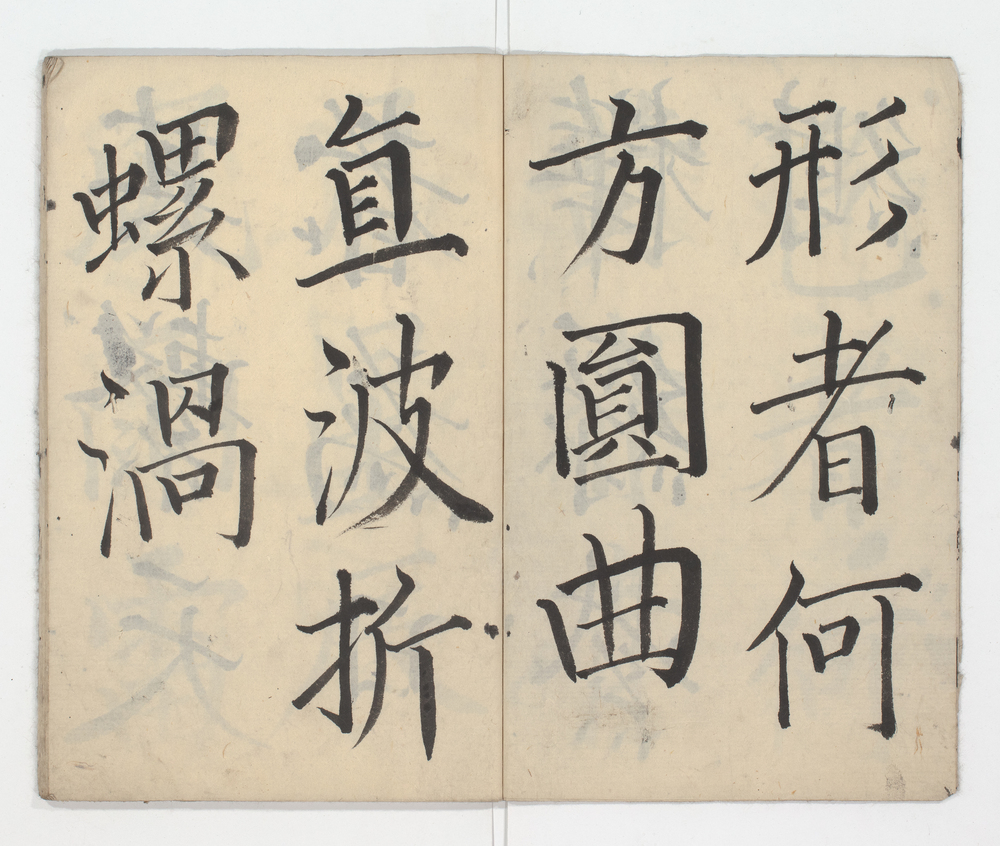 形者何
方圓曲
直波折
螺渦